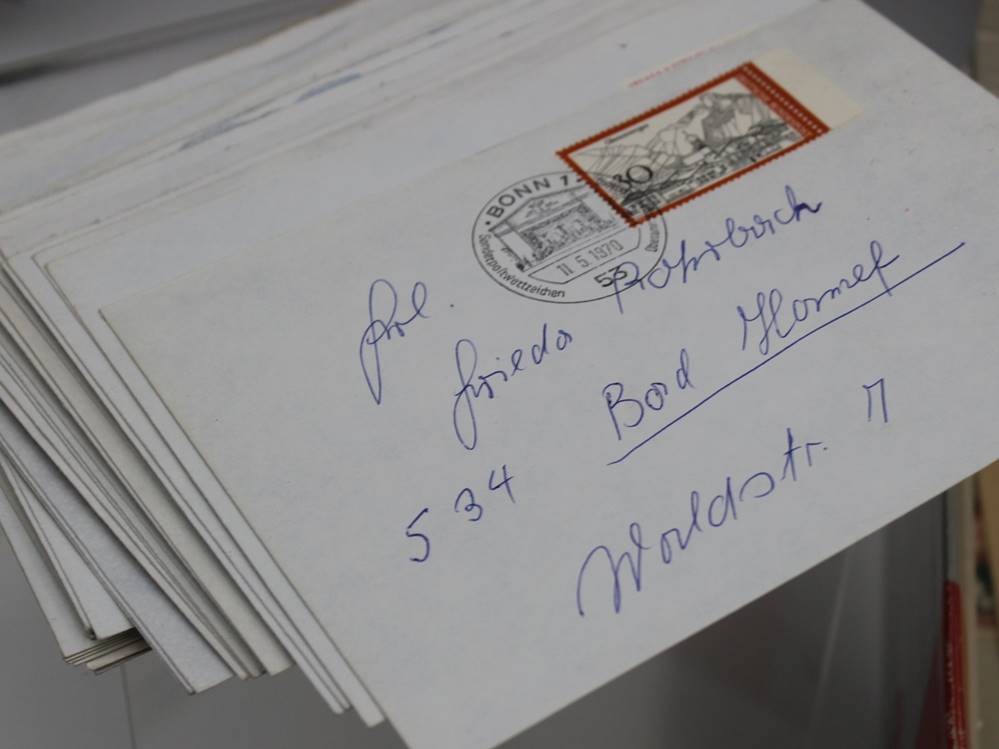 BONN 1
Sonderpostwertzeichen
11.5.1970
53
30
Frl.
Frieda Rohrbach
534 Bad Honnef
Waldstr. 17